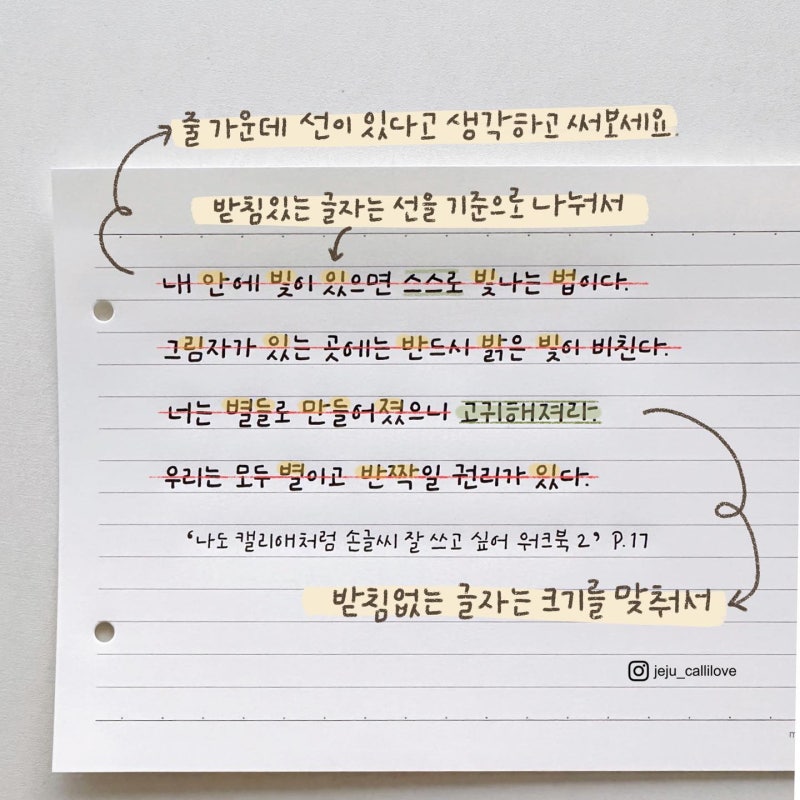 줄 가운데 선이 있다고 생각하고 써보세요.
받침있는 글자는 선을 기준으로 나눠서
내 안에 빛이 있으면 스스로 빛나는 법이다.
그림자가 있는 곳에는 반드시 밝은 빛이 비친다.
너는 별들로 만들어졌으니 고귀해져라.
우리는 모두 별이고 반짝일 권리가 있다.
'나도 캘리애처럼 손글씨 잘 쓰고 싶어 워크북 2' P.17
받침없는 글자는 크기를 맞춰서
jeju_callilove